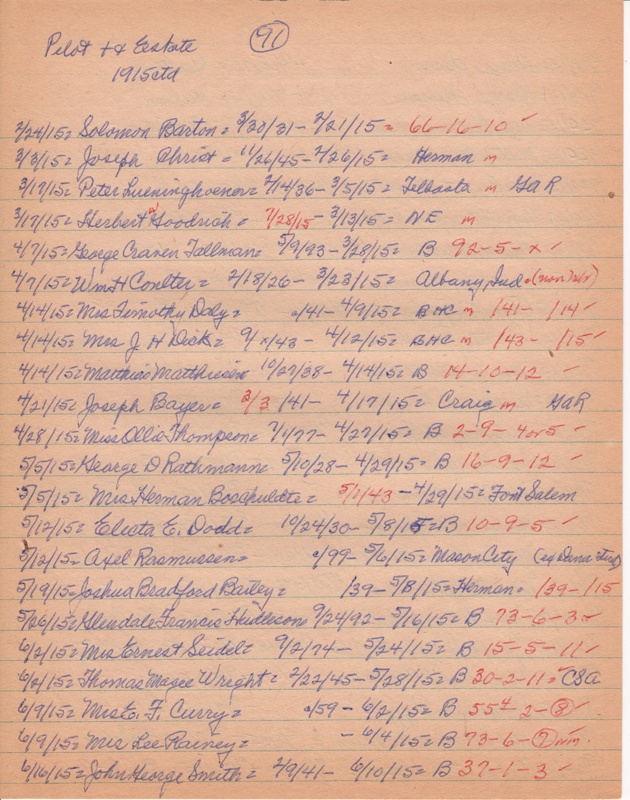 91
Pilot + Eestate
1915ctd
2/24/15= Solomon Barton= 3/30/31- 2/21/15= 66-16-10 ✓
3/3/15= Joseph Christ= 11/26/45- 2/26/15= Herman m
3/17/15= Peter Lueninghoener= 2/14/36- 3/5/15= Telbasta m GaR
3/17/15= Herbert Goodrich= 7/28/15- 3/13/15= NE m
4/7/15= George Craven Tallman= 5/9/93- 3/28/15= B 92-5-x ✓
4/7/15= Wm H Coulter= 2/18/26- 3/23/15= Albany, Ind=
4/14/15= Mrs Timothy Daly= /41- 4/9/15= BHC m /41- /14 ✓
4/14/15= Mrs J H Dick= 9/x/43- 4/12/15= BHC m /43- /15 ✓
4/14/15= Matthias Matthiesen 10/27/38- 4/14/15= B 14-10-12 ✓
4/21/15= Joseph Bayer= 3/3/41- 4/17/15= Craig m GaR
4/28/15= Miss Ollie Thompson= 7/1/77- 4/27/15= B 2-9-4or5 ✓
5/5/15= George D Rathmann= 5/10/28- 4/29/15= B 16-9-12 ✓
5/5/15= Mrs Herman Boschulte= 5/2/43- 4/29/15= Font Salem
5/12/15= Electa E. Dodd= 10/24/30- 5/8/15=B 10-9-5 ✓
5/12/15= Axel Rasmussen= /99- 5/6/15= Mason City
5/19/15= Joshua Bradford Bailey= /39- 5/8/15= Herman= /39- /15
5/26/15= Glendale Francis Hudleson= 9/24/92- 5/16/15= B 73-6-3 ✓
6/2/15= Mrs Ernest Seidel= 9/2/74- 5/24/15= B 15-5-11 ✓
6/2/15= Thomas Magee Wright= 2/22/45- 5/28/15= B 30-2-11= CSA
6/9/15= Mrs E. F. Curry= /59- 6/2/15= B 55-2-8 ✓
6/9/15= Mrs Lee Rainey= - 6/4/15= B 73-6-7 nm
6/16/15= John George Smith= 2/9/41- 6/10/15= B 37-1-3 ✓